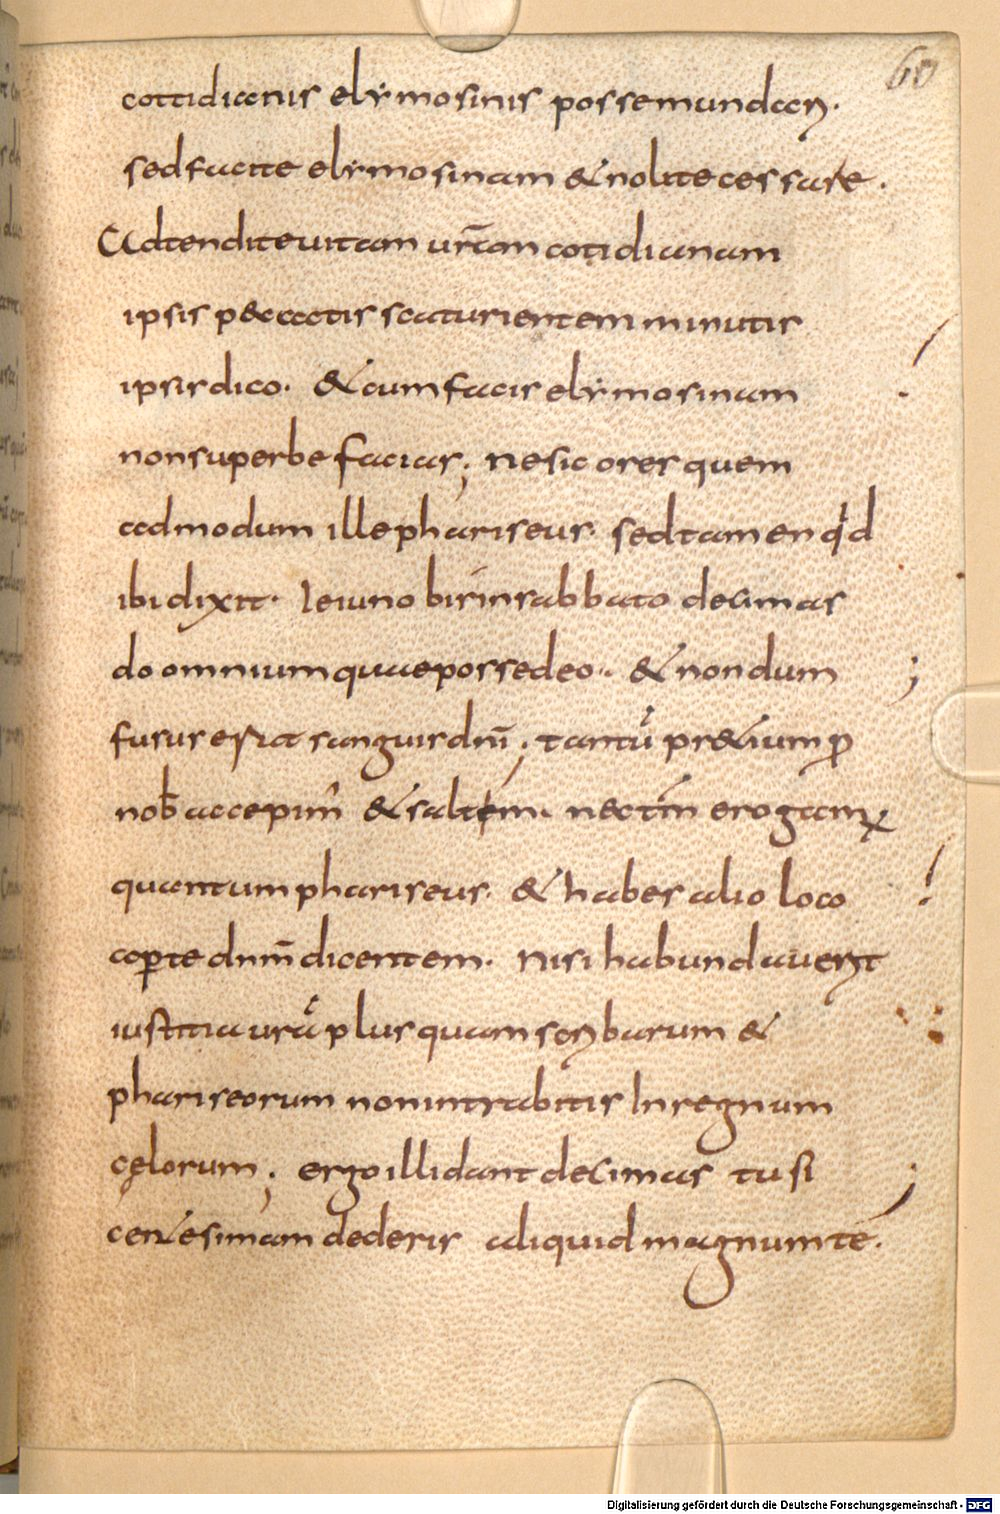 60
cottidianis elymosinis posse mundari.
sed facite elymosinam & nolite cessare.
Adtendite uitam ur̄am cotidianam
ipsis peccatis scaturientem minutis
ipsis dico. & cum facis elymosinam
non superbe facias; ne sic ores quem
admodum ille phariseus. sed tamen qd
ibi dixit. Ieiuno bis in sabbato decimas
do omnium quae possedeo.. & nondum
fusus erat sanguis dn̄i; tantū praetium ꝑ
nob accepim' & saltem. nec tm̄ erogam;
quantum phariseus. & habes alio loco
aꝑte dnm̄ dicentem. Nisi habundauerit
iustitia urā plus quam scribarum &
phariseorum non intrabitis In regnum
cęlorum; ergo illi dant decimas tu si
centesimam dederis aliquid magnum te.
Digitalisierung gefördert durch die Deutsche Forschungsgemeinschaft - DFG